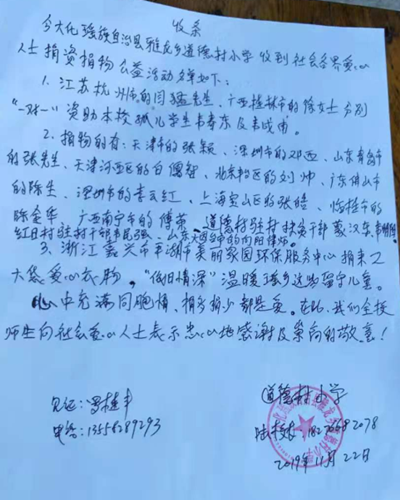 收条
今大化瑶族自治县雅龙乡道德村小学收到社会各界爱心
人士捐资捐物公益活动名单如下:
1. 江苏扬州市的闫猛先生、广西桂林市的 女士分别
"一对一"资助本校孤儿学生韦 东及韦 甫。
2. 捐物的有:天津市的张颖、深圳市的邓 、山东青岛市
的张先生、天津河西区的白德智、北京 区的刘帅、广东佛山市
的陈生、深圳市的李云红、上海宝山区的张皓、临桂市的
陈金华 广西南宁市的傅 、道德村驻村扶贫干部蒙汉东
红日村驻村干部韦 、山东 市的向阳律师。
3. 浙江嘉兴市平湖市美丽家园环保服务中心捐来工
大袋爱心衣服,"依旧情深"温暖瑶乡这边留守儿童。
心中充满同胞情,捐多捐少都是爱。在此,我们全校
师生向社会爱心人士表示衷心地感谢及崇高的敬意!
见证:罗桂丰
道德村小学
电话:13558289293
陆校长 18276682078
2019年11月22日